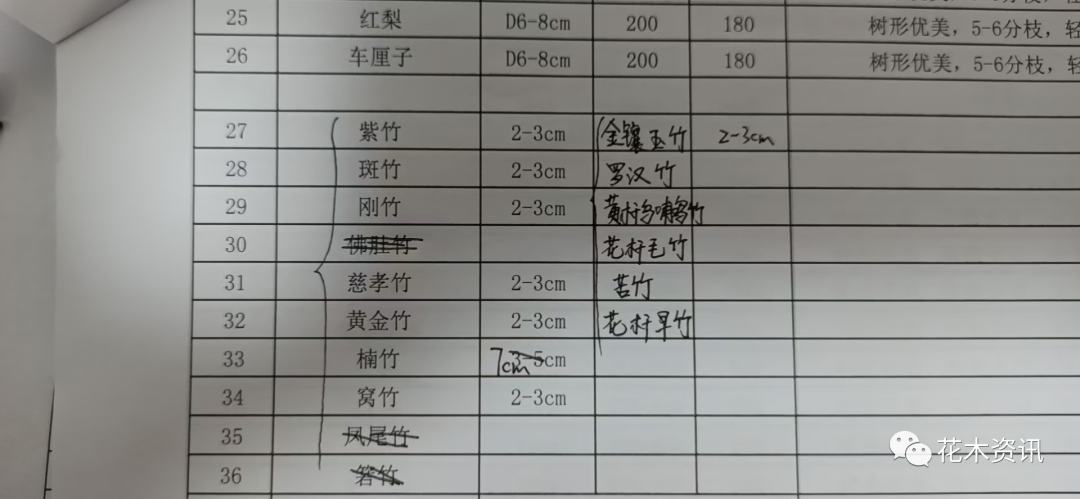 25 红梨 D6-8cm 200 180 树形优美，5-6分枝，轻
26 车厘子 D6-8cm 200 180 树形优美，5-6分枝，轻
27 紫竹 2-3cm 金镶玉竹 2-3cm
28 斑竹 2-3cm 罗汉竹
29 刚竹 2-3cm 黄杆乌哺鸡竹
30 佛肚竹 花杆毛竹
31 慈孝竹 2-3cm 苦竹
32 黄金竹 2-3cm 花杆早竹
33 楠竹 3-5cm 7cm
34 窝竹 2-3cm
35 凤尾竹
36 箬竹
花木资讯